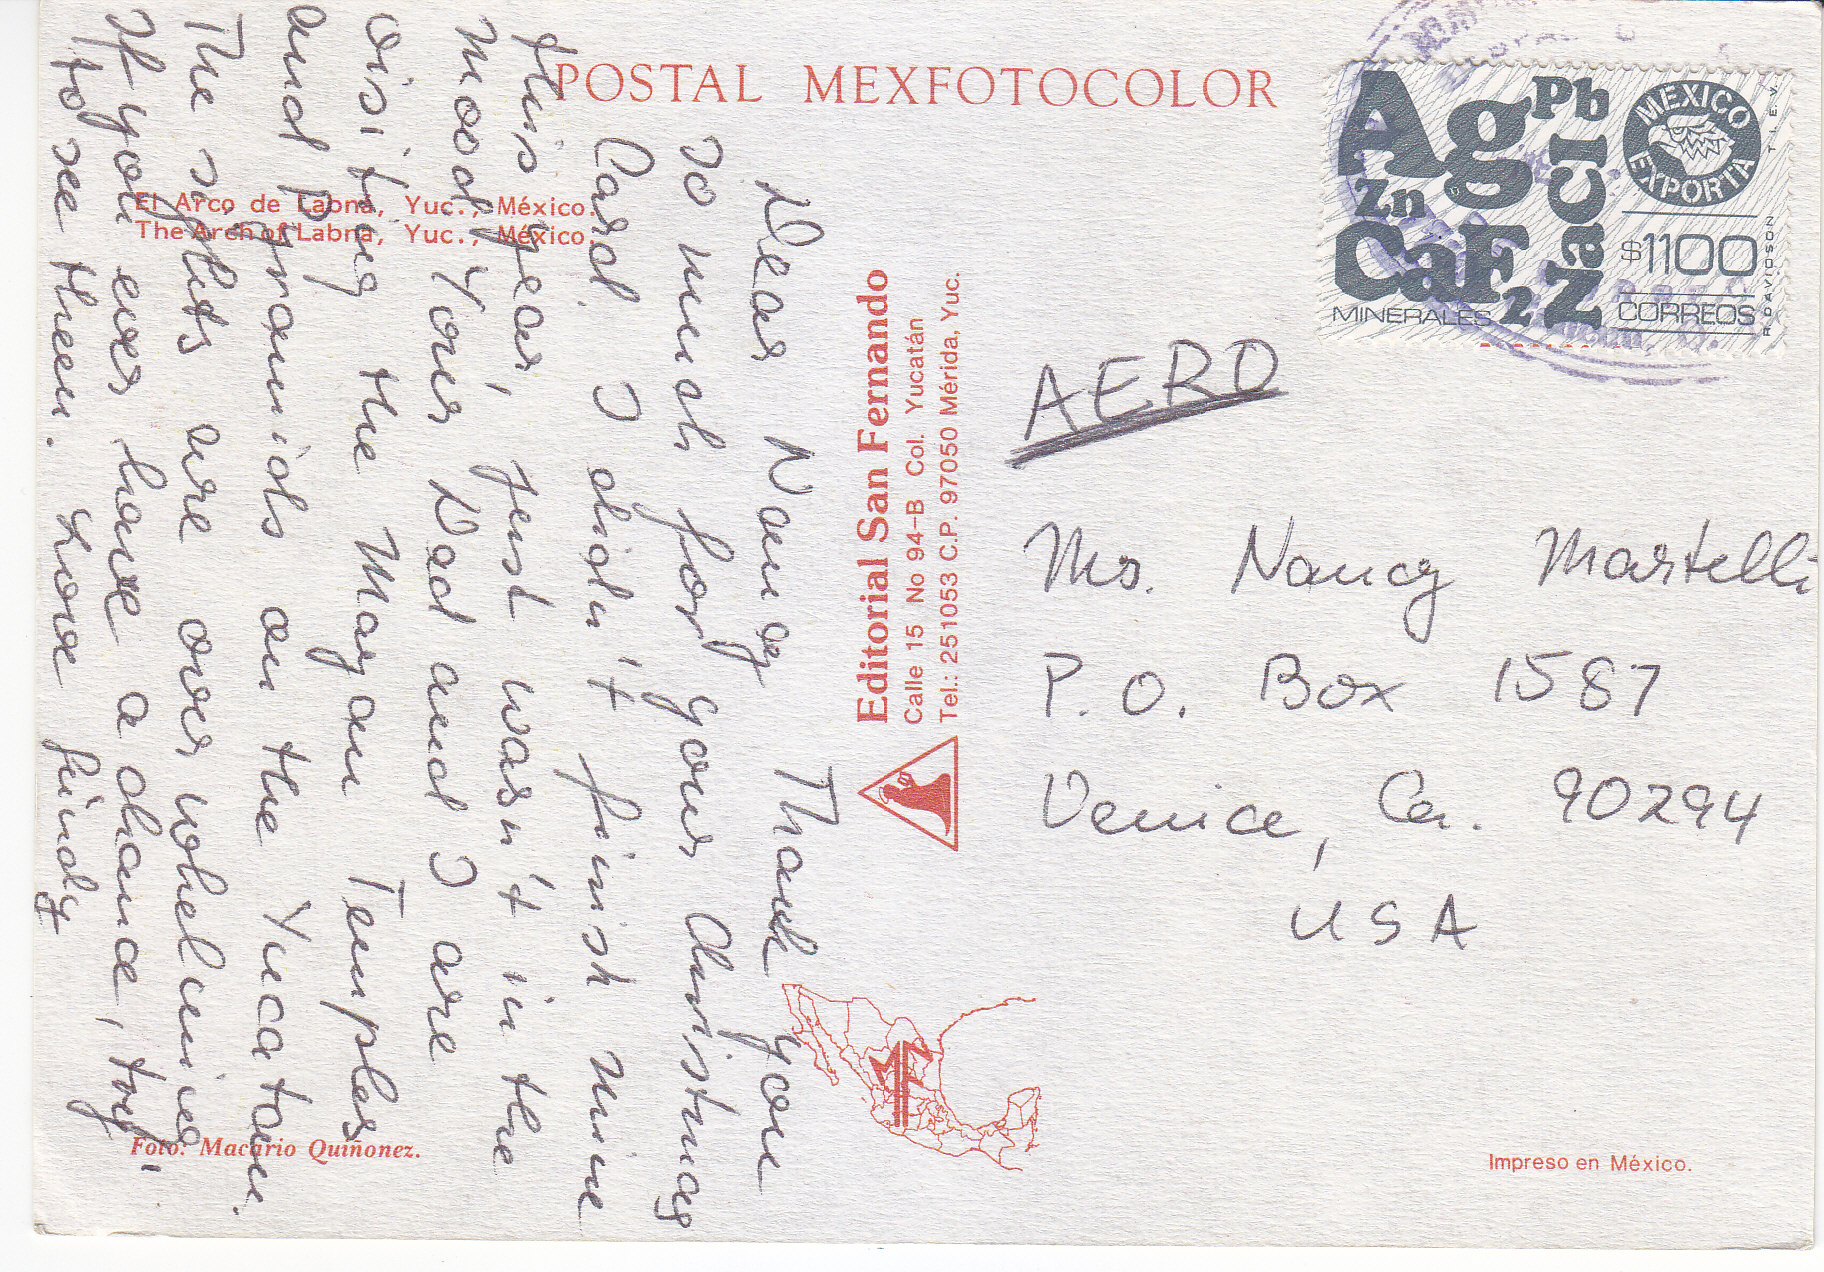 POSTAL MEXFOTOCOLOR
El Arco de Labná, Yuc., México.
The Arch of Labna, Yuc., México.
Dear Nancy Thank you
so much for your Christmas
Card. I didn't finish mine
this year, just wasn't in the
mood. Your Dad and I are
visiting the Mayan Temples
and Pyramids on the Yucatan.
The sights are overwhelming
If you ever have a chance, try
to see them. Love
Editorial San Fernando
Calle 15 No 94-B Col. Yucatán
Tel.: 251053 C.P. 97050 Mérida, Yuc.
Foto: Macario Quiñonez.
Ag Pb
Zn
CaF2
ZaCl
MINERALES
MEXICO
EXPORTA
$1100
CORREOS
T.I.E.V.
R DAVIDSON
AERO
Ms. Nancy Martelli
P.O. Box 1587
Venice, Ca. 90294
USA
Impreso en México.